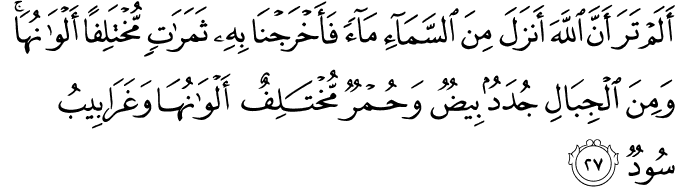 أَلَمْ تَرَ أَنَّ ٱللَّهَ أَنزَلَ مِنَ ٱلسَّمَآءِ مَآءً فَأَخْرَجْنَا بِهِۦ ثَمَرَٰتٍ مُّخْتَلِفًا أَلْوَٰنُهَا ۚ
وَمِنَ ٱلْجِبَالِ جُدَدٌۢ بِيضٌ وَحُمْرٌ مُّخْتَلِفٌ أَلْوَٰنُهَا وَغَرَابِيبُ
سُودٌ ٢٧